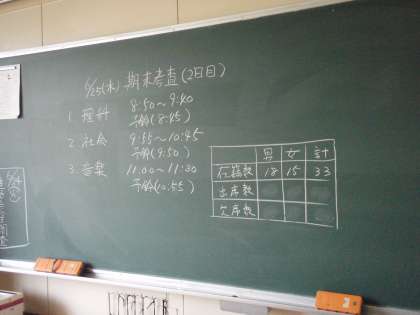 6/25(木) 期末考査(2日目)
1. 理科 8:50～9:40
予鈴(8:45)
2. 社会 9:55～10:45
予鈴(9:50)
3. 音楽 11:00～11:30
予鈴(10:55)
男 女 計
在籍数 18 15 33
出席数
欠席数